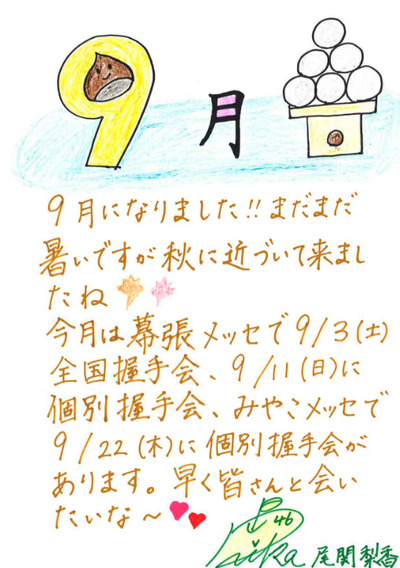 9月
9月になりました!!まだまだ
暑いですが秋に近づいて来まし
たね
今月は幕張メッセで9/3(土)
全国握手会、9/11(日)に
個別握手会、みやこメッセで
9/22(木)に個別握手会が
あります。早く皆さんと会い
たいな〜
46
Rika 尾関梨香